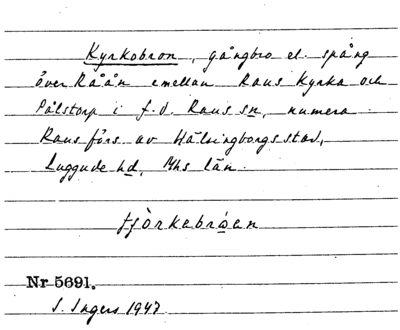 Kyrkobron, gångbro el. spång
över Råån emellan Raus Kyrka och
Pålstorp i f.d. Raus sn, numera
Raus förs. av Hälsingborgs stad,
Luggude hd, Mhs län.
tjörkabroen
Nr 5691.
I. Ingers 1947